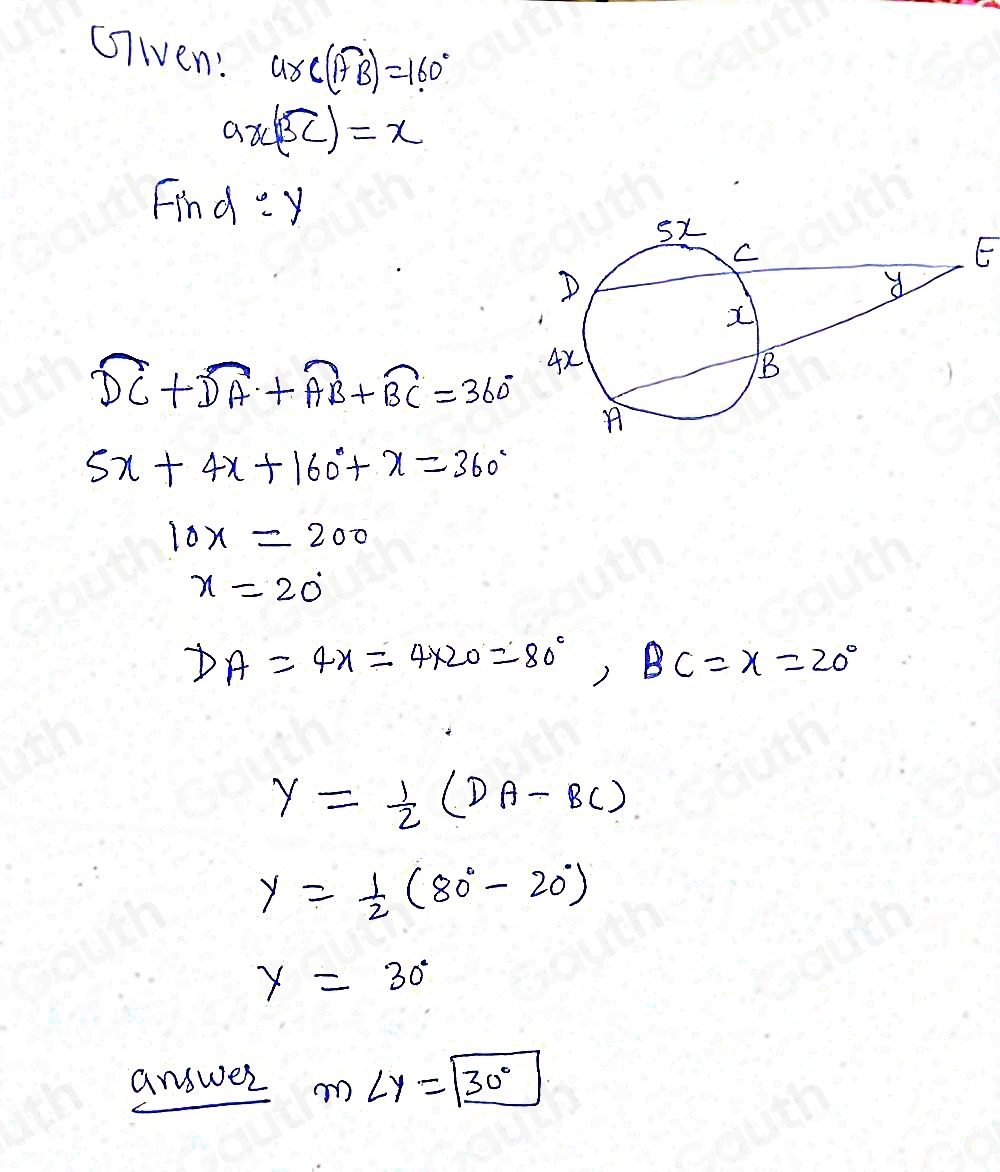 Given: arc(AB) = 160°
arc(BC) = x
Find : y
5x
C
E
D
y
x
4x
B
A
DC + DA + AB + BC = 360°
5x + 4x + 160° + x = 360°
10x = 200
x = 20°
DA = 4x = 4×20 = 80° , BC = x = 20°
Y = 1/2 (DA - BC)
Y = 1/2 (80° - 20°)
Y = 30°
answer m∠Y = 30°
Gauth